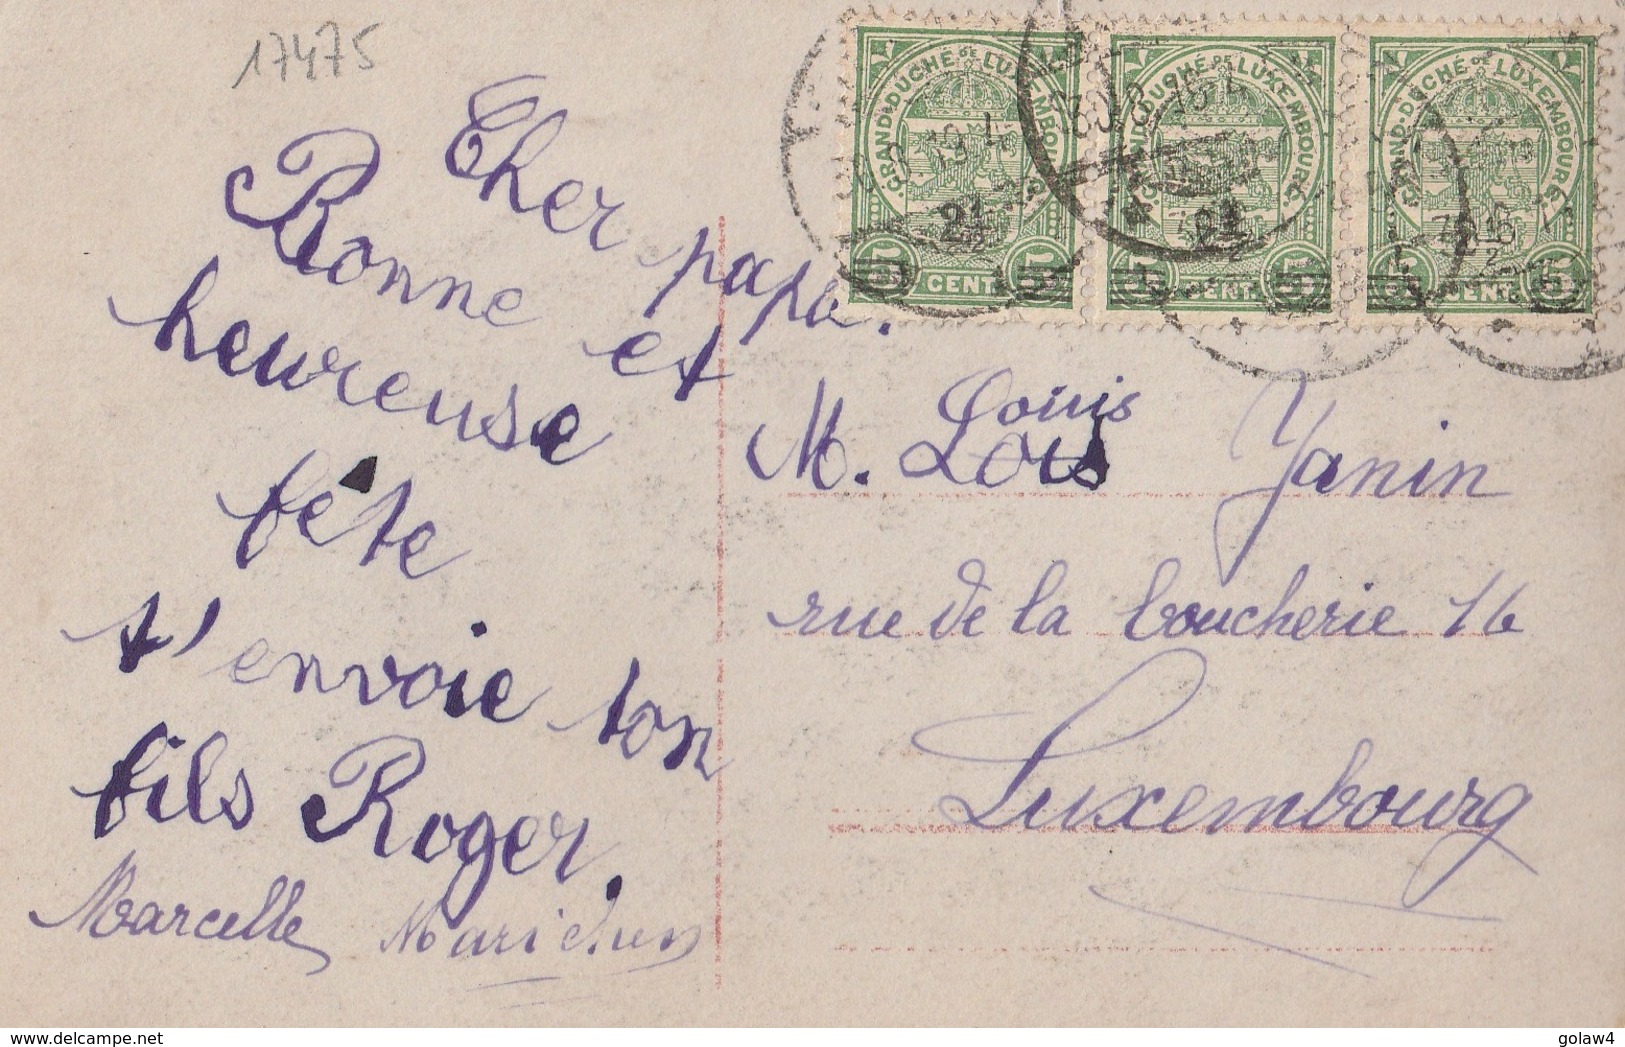 17475
Cher papa.
Bonne et
heureuse
fête
t'envoie ton
fils Roger.
Marcelle Marichen
GRAND-DUCHÉ DE LUXEMBOURG.
2½
5 CENT. 5
GRAND-DUCHÉ DE LUXEMBOURG.
2½
5 CENT. 5
GRAND-DUCHÉ DE LUXEMBOURG.
2½
5 CENT. 5
Louis
M. Lois Yanin
rue de la boucherie 16
Luxembourg
www.delcampe.net
golaw4